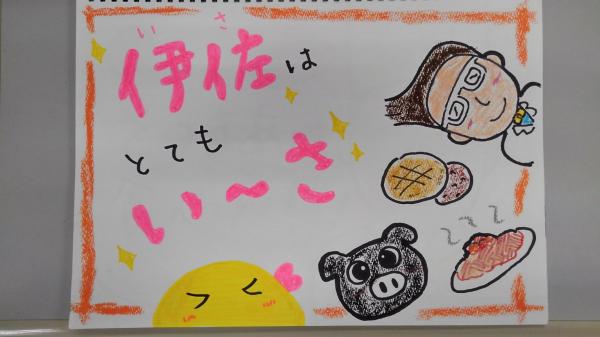 いさ
伊佐は
とても
い～さ